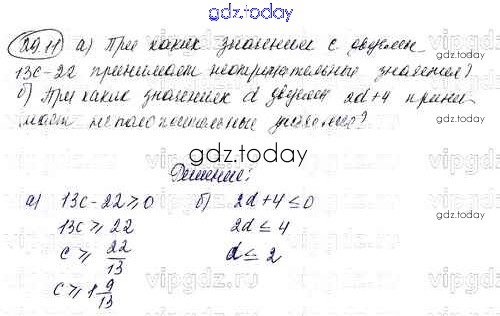 gdz.today
29.11 а) При каких значениях с двучлен
13с-22 принимает неотрицательные значения?
б) При каких значениях d двучлен 2d+4 прини-
мает неположительные значения?
gdz.today
Решение:
а) 13с-22≥0 б) 2d+4≤0
13с≥22 2d≤4
с≥ 22/13 d≤2
с≥1 9/13
gdz.today